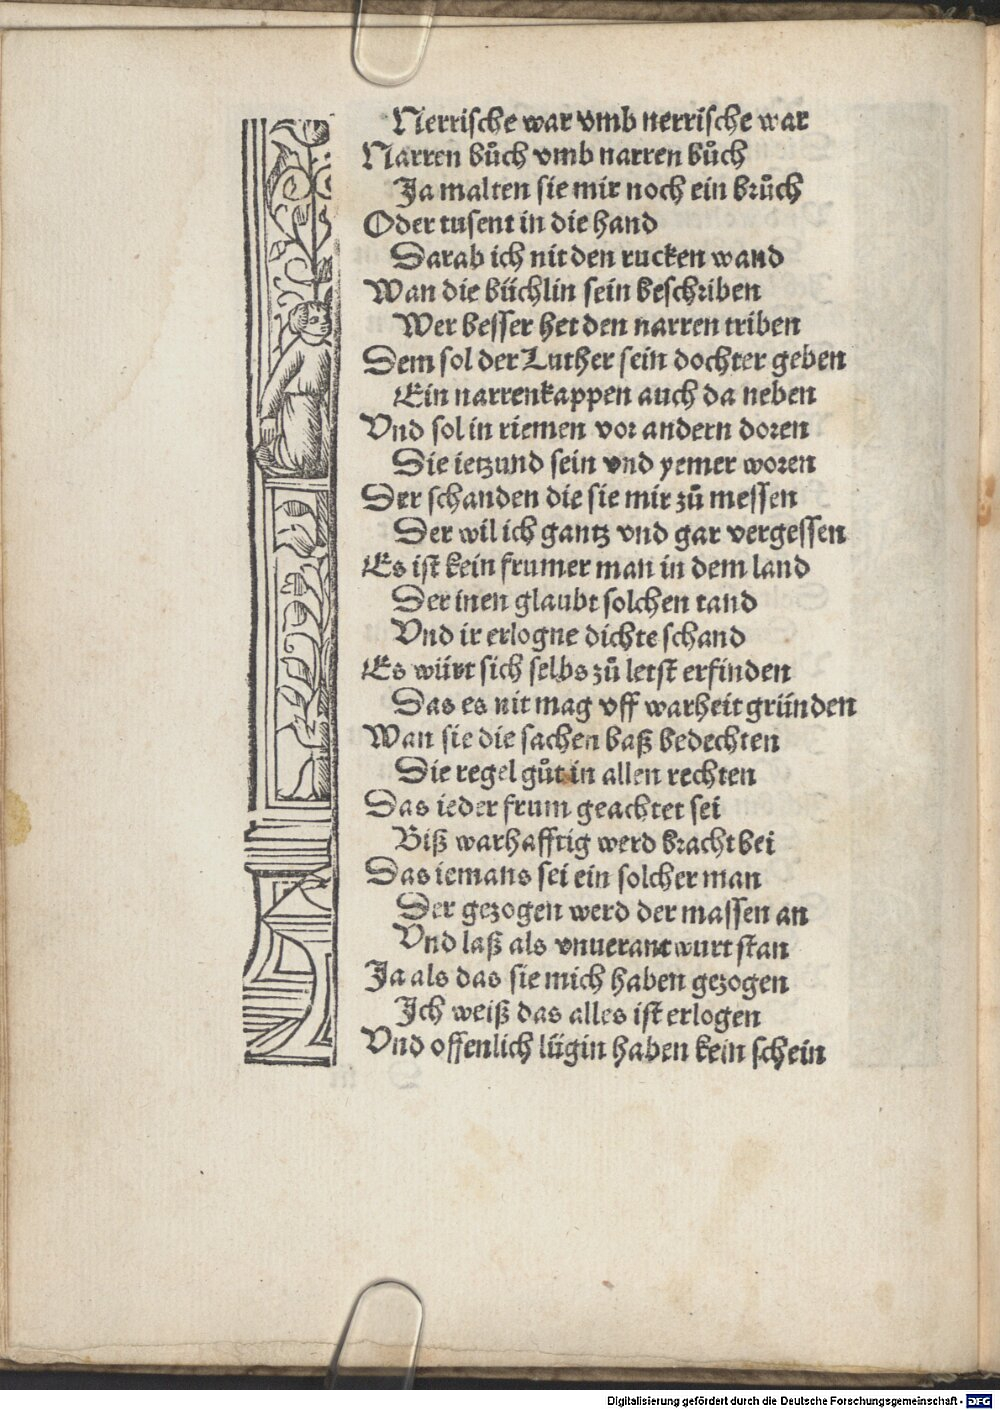 Nerrische war vmb nerrische war
Narren bůch vmb narren bůch
Ja malten sie mir noch ein brůch
Oder tusent in die hand
Darab ich nit den rucken wand
Wan die büchlin sein beschriben
Wer besser het den narren triben
Dem sol der Luther sein dochter geben
Ein narrenkappen auch da neben
Vnd sol in riemen vor andern doren
Die ietzund sein vnd yemer woren
Der schanden die sie mir zů messen
Der wil ich gantz vnd gar vergessen
Es ist kein frumer man in dem land
Der inen glaubt solchen tand
Vnd ir erlogne dichte schand
Es würt sich selbs zů letst erfinden
Das es nit mag vff warheit gründen
Wan sie die sachen baß bedechten
Die regel gůt in allen rechten
Das ieder frum geachtet sei
Biß warhafftig werd bracht bei
Das iemans sei ein solcher man
Der gezogen werd der massen an
Vnd laß als vnuerantwurt stan
Ja als das sie mich haben gezogen
Ich weiß das alles ist erlogen
Vnd offenlich lügin haben kein schein
Digitalisierung gefördert durch die Deutsche Forschungsgemeinschaft - DFG